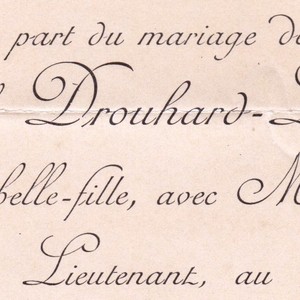 part du mariage de
Drouhard-
belle-fille, avec M
Lieutenant, au